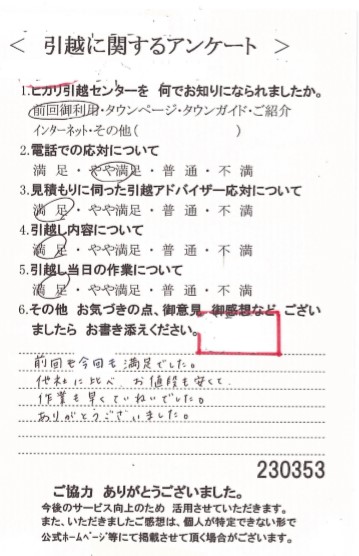 ＜ 引越に関するアンケート ＞
1.ヒカリ引越センターを 何でお知りになられましたか。
前回御利用・タウンページ・タウンガイド・ご紹介
インターネット・その他(          )
2.電話での応対について
満 足・やや満足・普 通・不 満
3.見積もりに伺った引越アドバイザー応対について
満 足・やや満足・普 通・不 満
4.引越し内容について
満 足・やや満足・普 通・不 満
5.引越し当日の作業について
満 足・やや満足・普 通・不 満
6.その他 お気づきの点、御意見、御感想など、ござい
ましたら お書き添えください。
前回も今回も満足でした。
他社に比べ、お値段も安くて、
作業も早くていねいでした。
ありがとうございました。
230353
ご協力 ありがとうございました。
今後のサービス向上のため 活用させていただきます。
また、いただきましたご感想は、個人が特定できない形で
公式ホームページ等にて掲載させて頂く場合がございます。